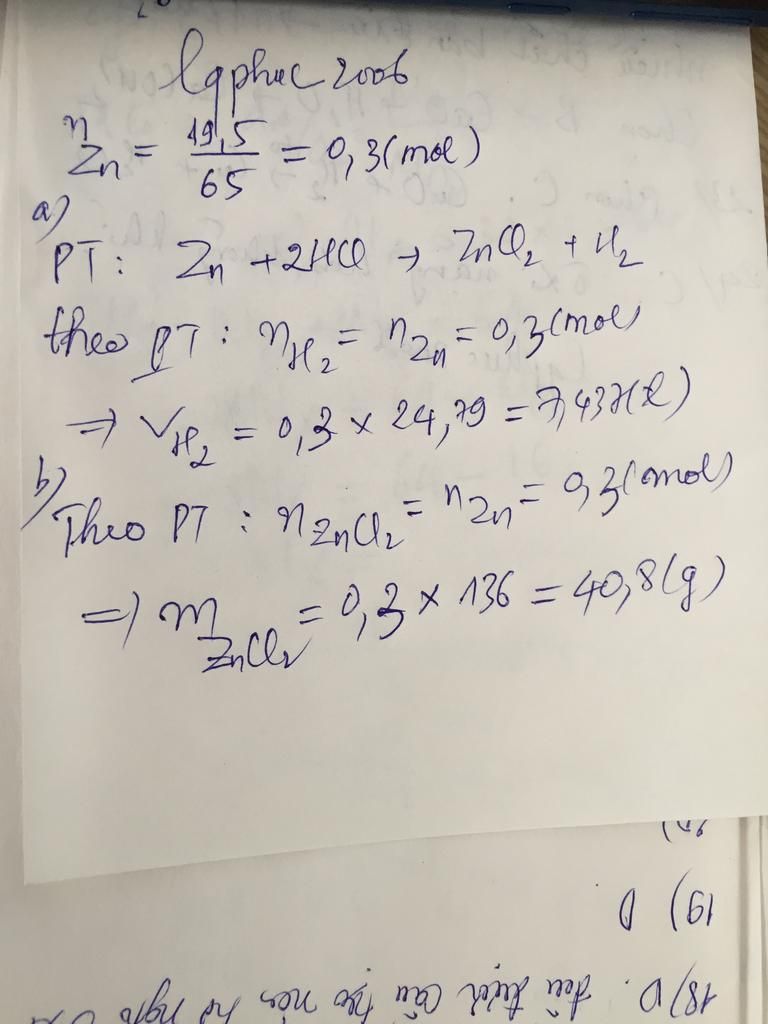 lqphuc2006
nZn = 19,5/65 = 0,3(mol)
a)
PT: Zn + 2HCl → ZnCl2 + H2
theo PT: nH2 = nZn = 0,3(mol)
=> VH2 = 0,3 × 24,79 = 7,437(l)
b)
Theo PT: nZnCl2 = nZn = 0,3(mol)
=> mZnCl2 = 0,3 × 136 = 40,8(g)
19) D
18) D.